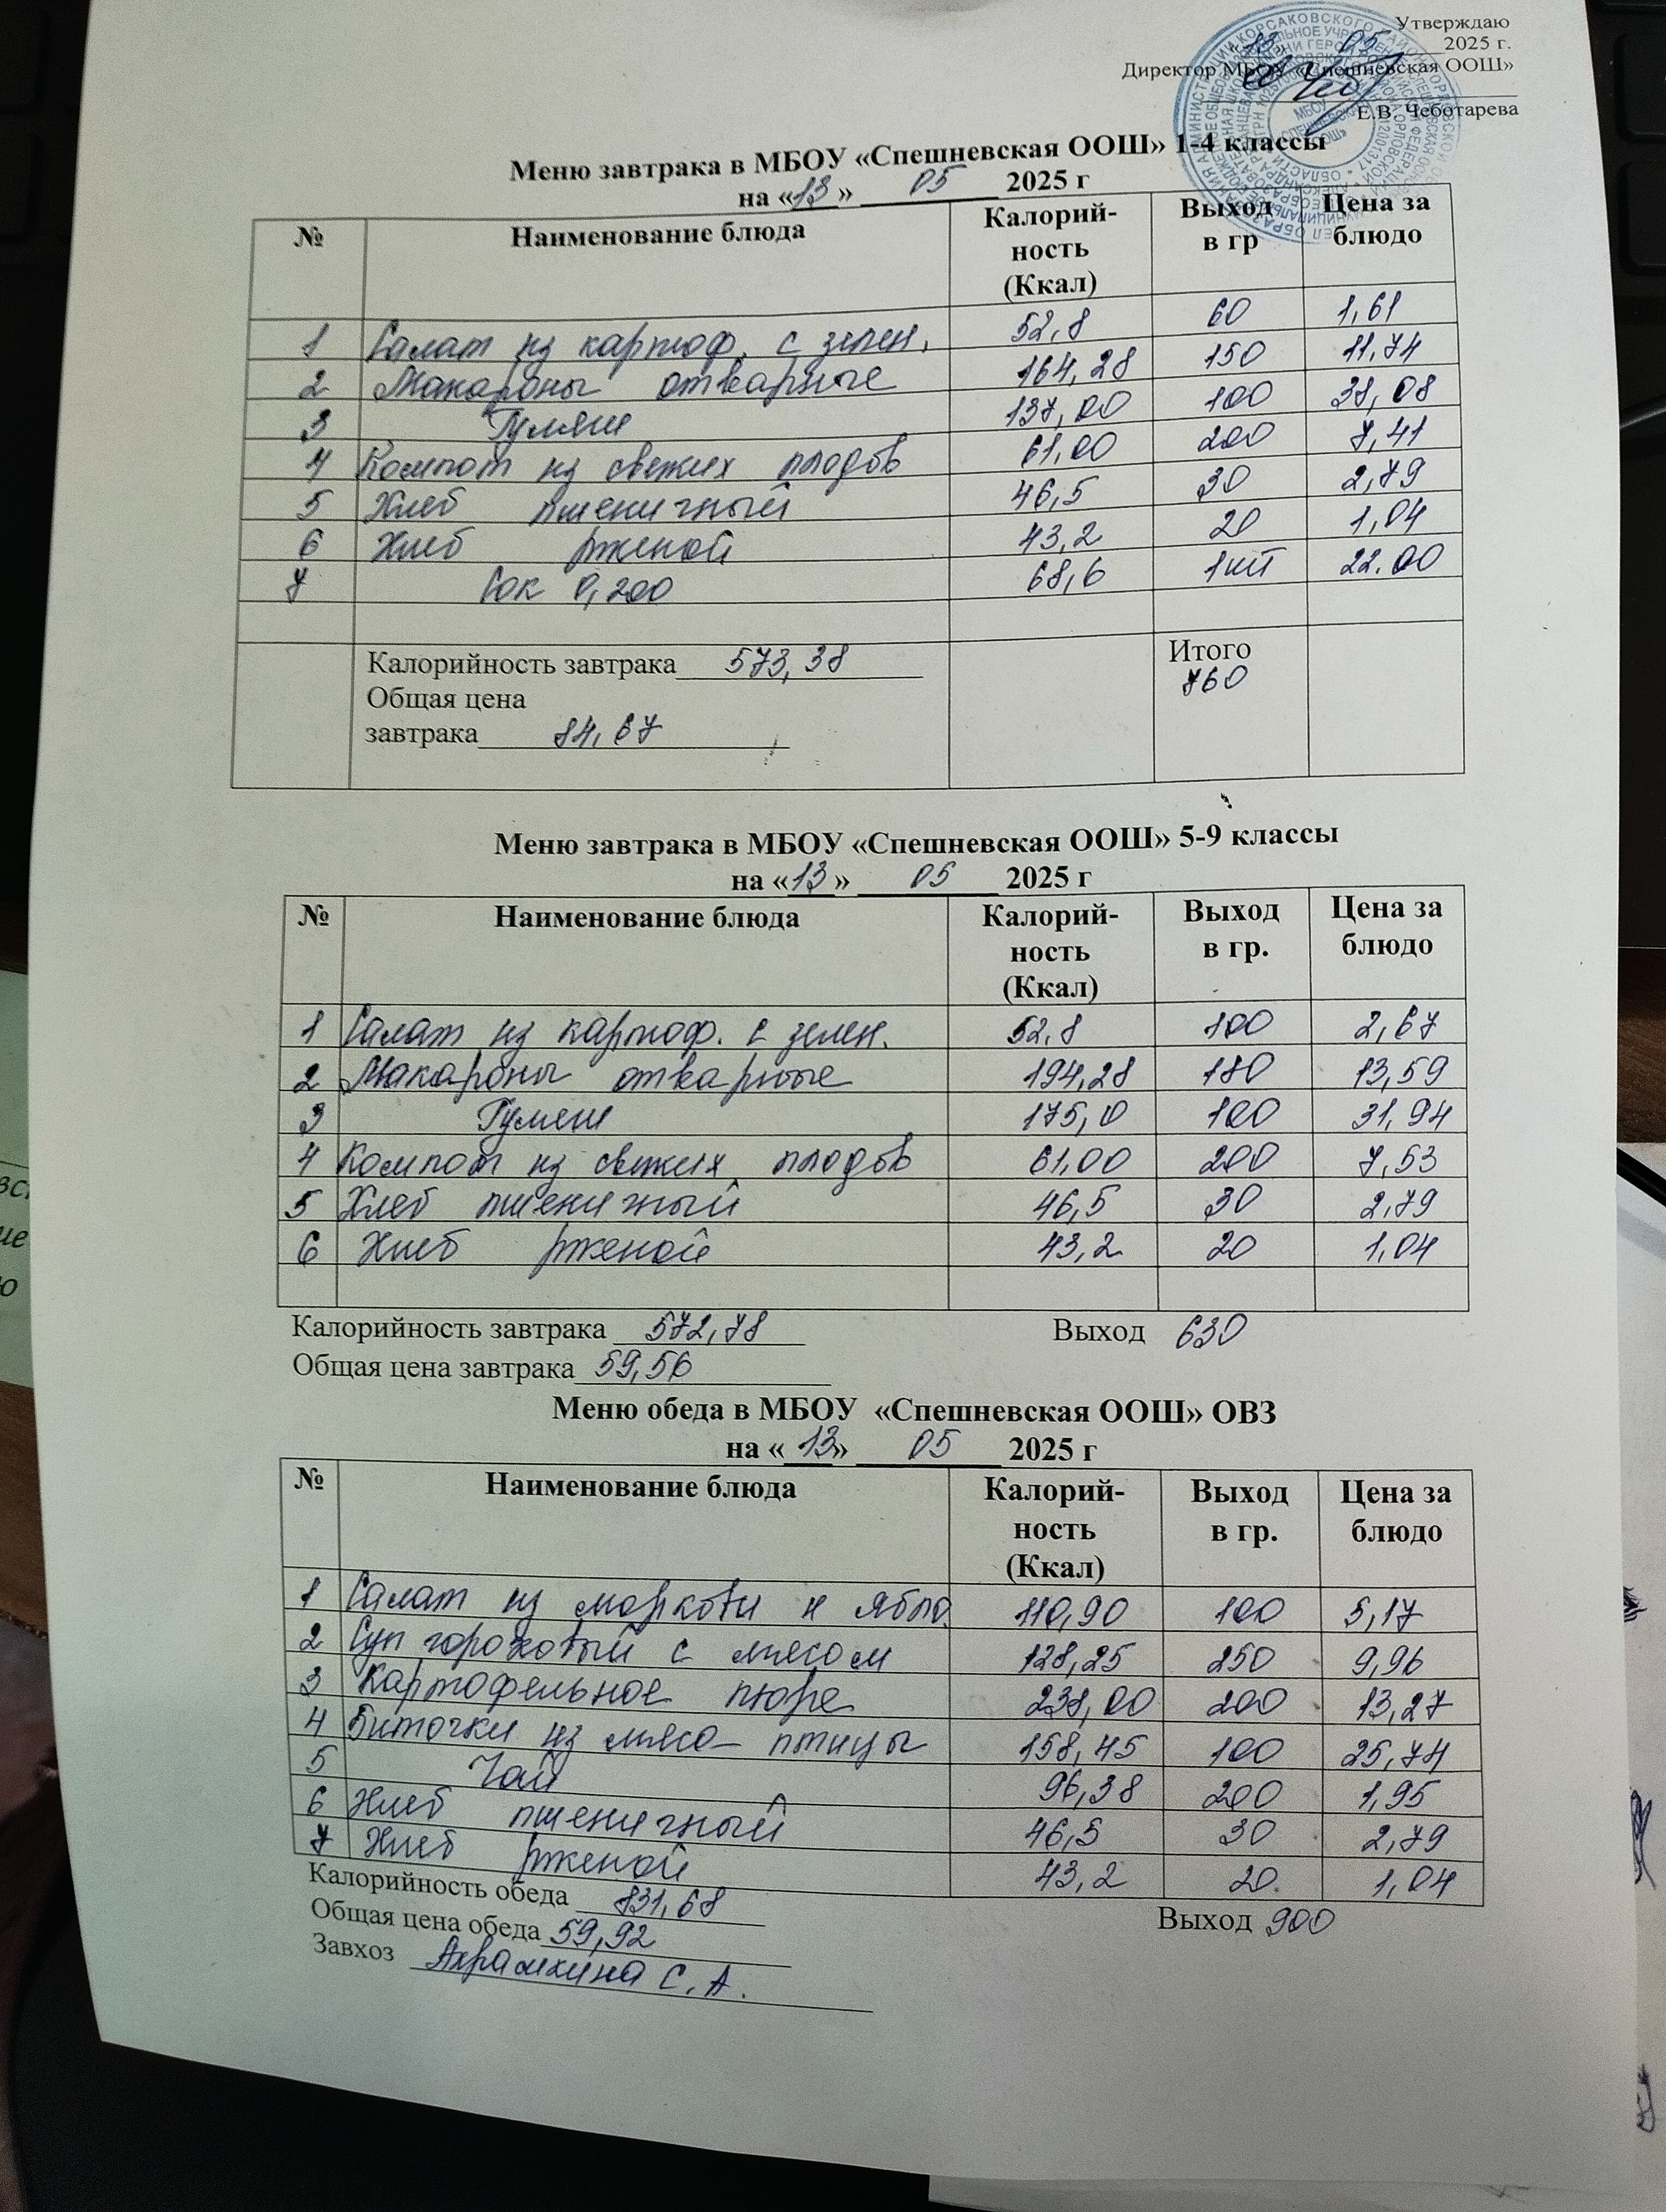 Утверждаю
«13» 05 2025 г.
Директор МБОУ «Спешневская ООШ»
Е.В. Чеботарева
Меню завтрака в МБОУ «Спешневская ООШ» 1-4 классы
на «13» 05 2025 г
№ Наименование блюда Калорий-ность (Ккал) Выход в гр Цена за блюдо
1 Салат из картоф. с зелен. 52,8 60 1,61
2 Макароны отварные 164,28 150 11,74
3 Гуляш 137,00 100 38,08
4 Компот из свежих плодов 61,00 200 7,41
5 Хлеб пшеничный 46,5 30 2,79
6 Хлеб ржаной 43,2 20 1,04
7 Сок 0,200 68,6 1шт 22.00
Калорийность завтрака 573,38 Итого
Общая цена 760
завтрака 84,67
Меню завтрака в МБОУ «Спешневская ООШ» 5-9 классы
на «13» 05 2025 г
№ Наименование блюда Калорий-ность (Ккал) Выход в гр. Цена за блюдо
1 Салат из картоф. с зелен. 52,8 100 2,67
2 Макароны отварные 194,28 180 13,59
3 Гуляш 175,0 100 31,94
4 Компот из свежих плодов 61,00 200 7,53
5 Хлеб пшеничный 46,5 30 2,79
6 Хлеб ржаной 43,2 20 1,04
Калорийность завтрака 572,78 Выход 630
Общая цена завтрака 59,56
Меню обеда в МБОУ «Спешневская ООШ» ОВЗ
на «13» 05 2025 г
№ Наименование блюда Калорий-ность (Ккал) Выход в гр. Цена за блюдо
1 Салат из моркови и ябло. 110,90 100 5,17
2 Суп гороховый с мясом 128,25 250 9,96
3 Картофельное пюре 238,00 200 13,27
4 Биточки из мяса птицы 158,45 100 25,74
5 Чай 96,38 200 1,95
6 Хлеб пшеничный 46,5 30 2,79
7 Хлеб ржаной 43,2 20. 1,04
Калорийность обеда 831,68 Выход 900
Общая цена обеда 59,92
Завхоз Ахрамкина С.А.